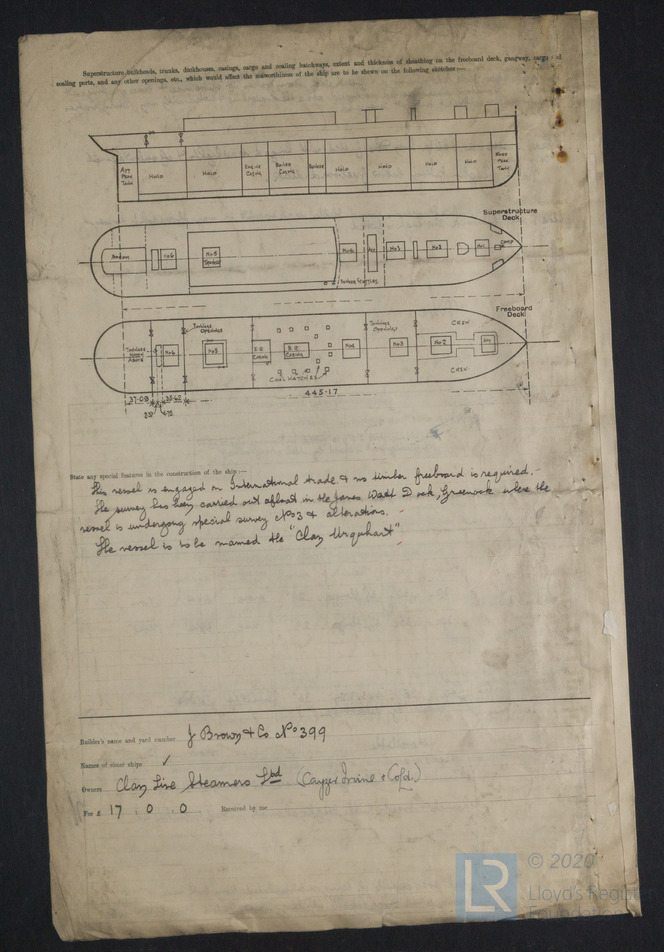 Superstructure bulkheads, trunks, deckhouses, casings, cargo and coaling hatchways, extent and thickness of sheathing on the freeboard deck, gangway, cargo and
coaling ports, and any other openings, etc., which would affect the seaworthiness of the ship are to be shown on the following sketches:—
Aft Peak Tank
Hold
Hold
Engine Casing
Boiler Casing
Bunker
Hold
Hold
Hold
Hold
Fore Peak Tank
Superstructure Deck
No6
No5
No3
No2
No1
Bunker Scuttles
Freeboard Deck
Tonnage Openings
Tonnage Openings
Crew
No6
No5
E.R Casing
B.R Casing
No4
No3
No2
No1
Crew
Coal Hatches
445.17
37.08
State any special features in the construction of the ship:—
This vessel is engaged on International trade & no timber freeboard is required.
The survey has been carried out afloat in the James Watt Dock, Greenock where the
vessel is undergoing special survey No3 & alterations.
The vessel is to be named the "Clan Urquhart"
Builder's name and yard number J Brown & Co No 399
Names of sister ships ✓
Owners Clan Line Steamers Ltd (Cayzer Irvine & Co Ld.)
Fee £ 17 . 0 . 0 Received by me
LR © 2020
Lloyd's Register
Foundation